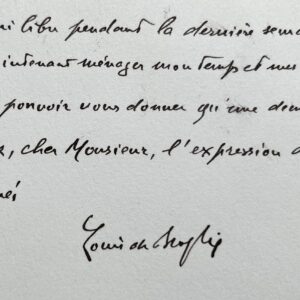 libre pendant la dernière sema
intenant ménager mon temps et mes
pouvoir vous donner qu'une dem
, cher Monsieur, l'expression d
Louis de Broglie